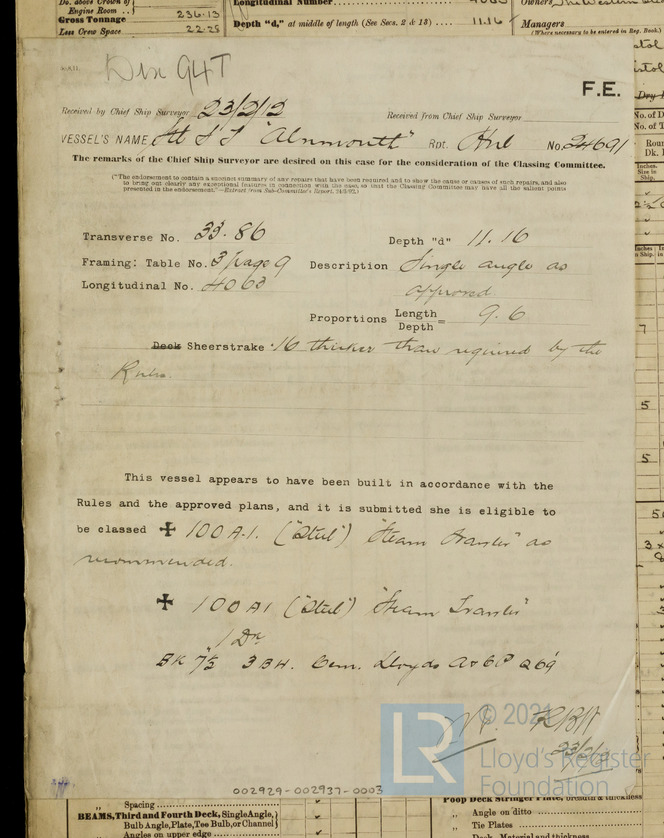 Do. above Crown of
Engine Room ..
Gross Tonnage
236.13
Less Crew Space
22.25
Longitudinal Number
Depth "d," at middle of length (See Secs. 2 & 13)
11.16
Owners The Western
Managers
(Where necessary to be entered in Reg. Book.)
94T
F.E.
Received by Chief Ship Surveyor 23/2/12
Received from Chief Ship Surveyor
VESSEL'S NAME St S T "Alnmouth" Rpt. Hul No. 24691
The remarks of the Chief Ship Surveyor are desired on this case for the consideration of the Classing Committee.
("The endorsement to contain a succinct summary of any repairs that have been required and to show the cause or causes of such repairs, and also
to bring out clearly any exceptional features in connection with the case, so that the Classing Committee may have all the salient points
presented in the endorsement."—Extract from Sub-Committee's Report, 24/3/02.)
Transverse No. 33.86
Depth "d" 11.16
Framing: Table No. 3/page 9
Description Single angle as
approved
Longitudinal No. 4063
Proportions Length
Depth = 9.6
Deck Sheerstrake .16 thicker than required by the
Rules.
This vessel appears to have been built in accordance with the
Rules and the approved plans, and it is submitted she is eligible to
be classed ✠ 100 A.1. ("Steel") "Steam Trawler" as
recommended.
✠ 100 A1 ("Steel") "Steam Trawler"
1 Dk
BK 7½ 3 BH. Cem. Lloyds A & CP
© 2021
LR
Lloyd's Register
Foundation
23/2/12
002929-002937-0003
Spacing
BEAMS, Third and Fourth Deck, Single Angle,
Bulb Angle, Plate, Tee Bulb, or Channel
Angles on upper edge
Poop Deck Stringer Plate, breadth & thickness
„ Angle on ditto
„ Tie Plates
Deck, Material and thickness